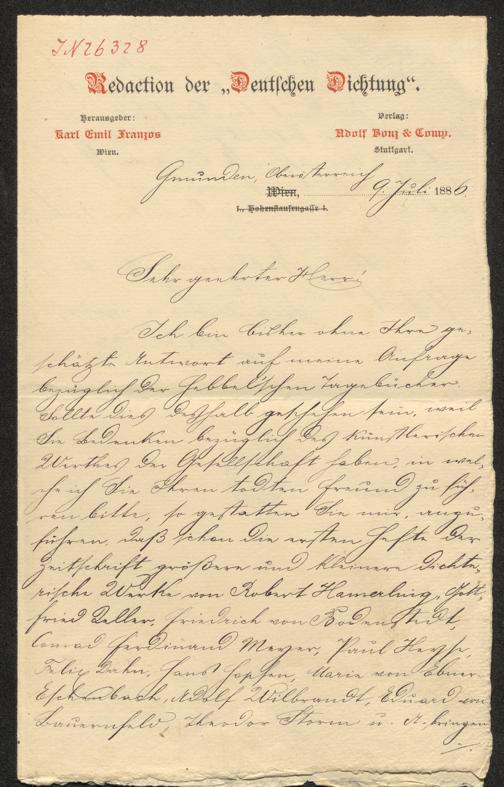 IN26328
Redaction der „Deutschen Dichtung“.
Herausgeber:
Karl Emil Franzos
Wien.
Verlag:
Adolf Bonz & Comp.
Stuttgart.
Gmunden, Oberösterreich
Wien, 9. Juli 1886.
I., Hohenstaufengasse 4.
Sehr geehrter Herr!
Ich bin bisher ohne Ihre ge-
schätzte Antwort auf meine Anfrage
bezüglich der Hebbel'schen Tagebücher.
Sollte dies deshalb geschehen sein, weil
Sie Bedenken bezüglich des künstlerischen
Werthes der Gesellschaft haben, in wel-
che ich Sie Ihren todten Freund zu füh-
ren bitte, so gestatten Sie mir, anzu-
führen, daß schon die ersten Hefte der
Zeitschrift größere und kleinere dichte-
rische Werke von Robert Hamerling, Gott-
fried Keller, Friedrich von Bodenstedt,
Conrad Ferdinand Meyer, Paul Heyse,
Felix Dahn, Hans Hopfen, Marie von Ebner
Eschenbach, Adolf Wilbrandt, Eduard von
Bauernfeld, Theodor Storm u. A. bringen